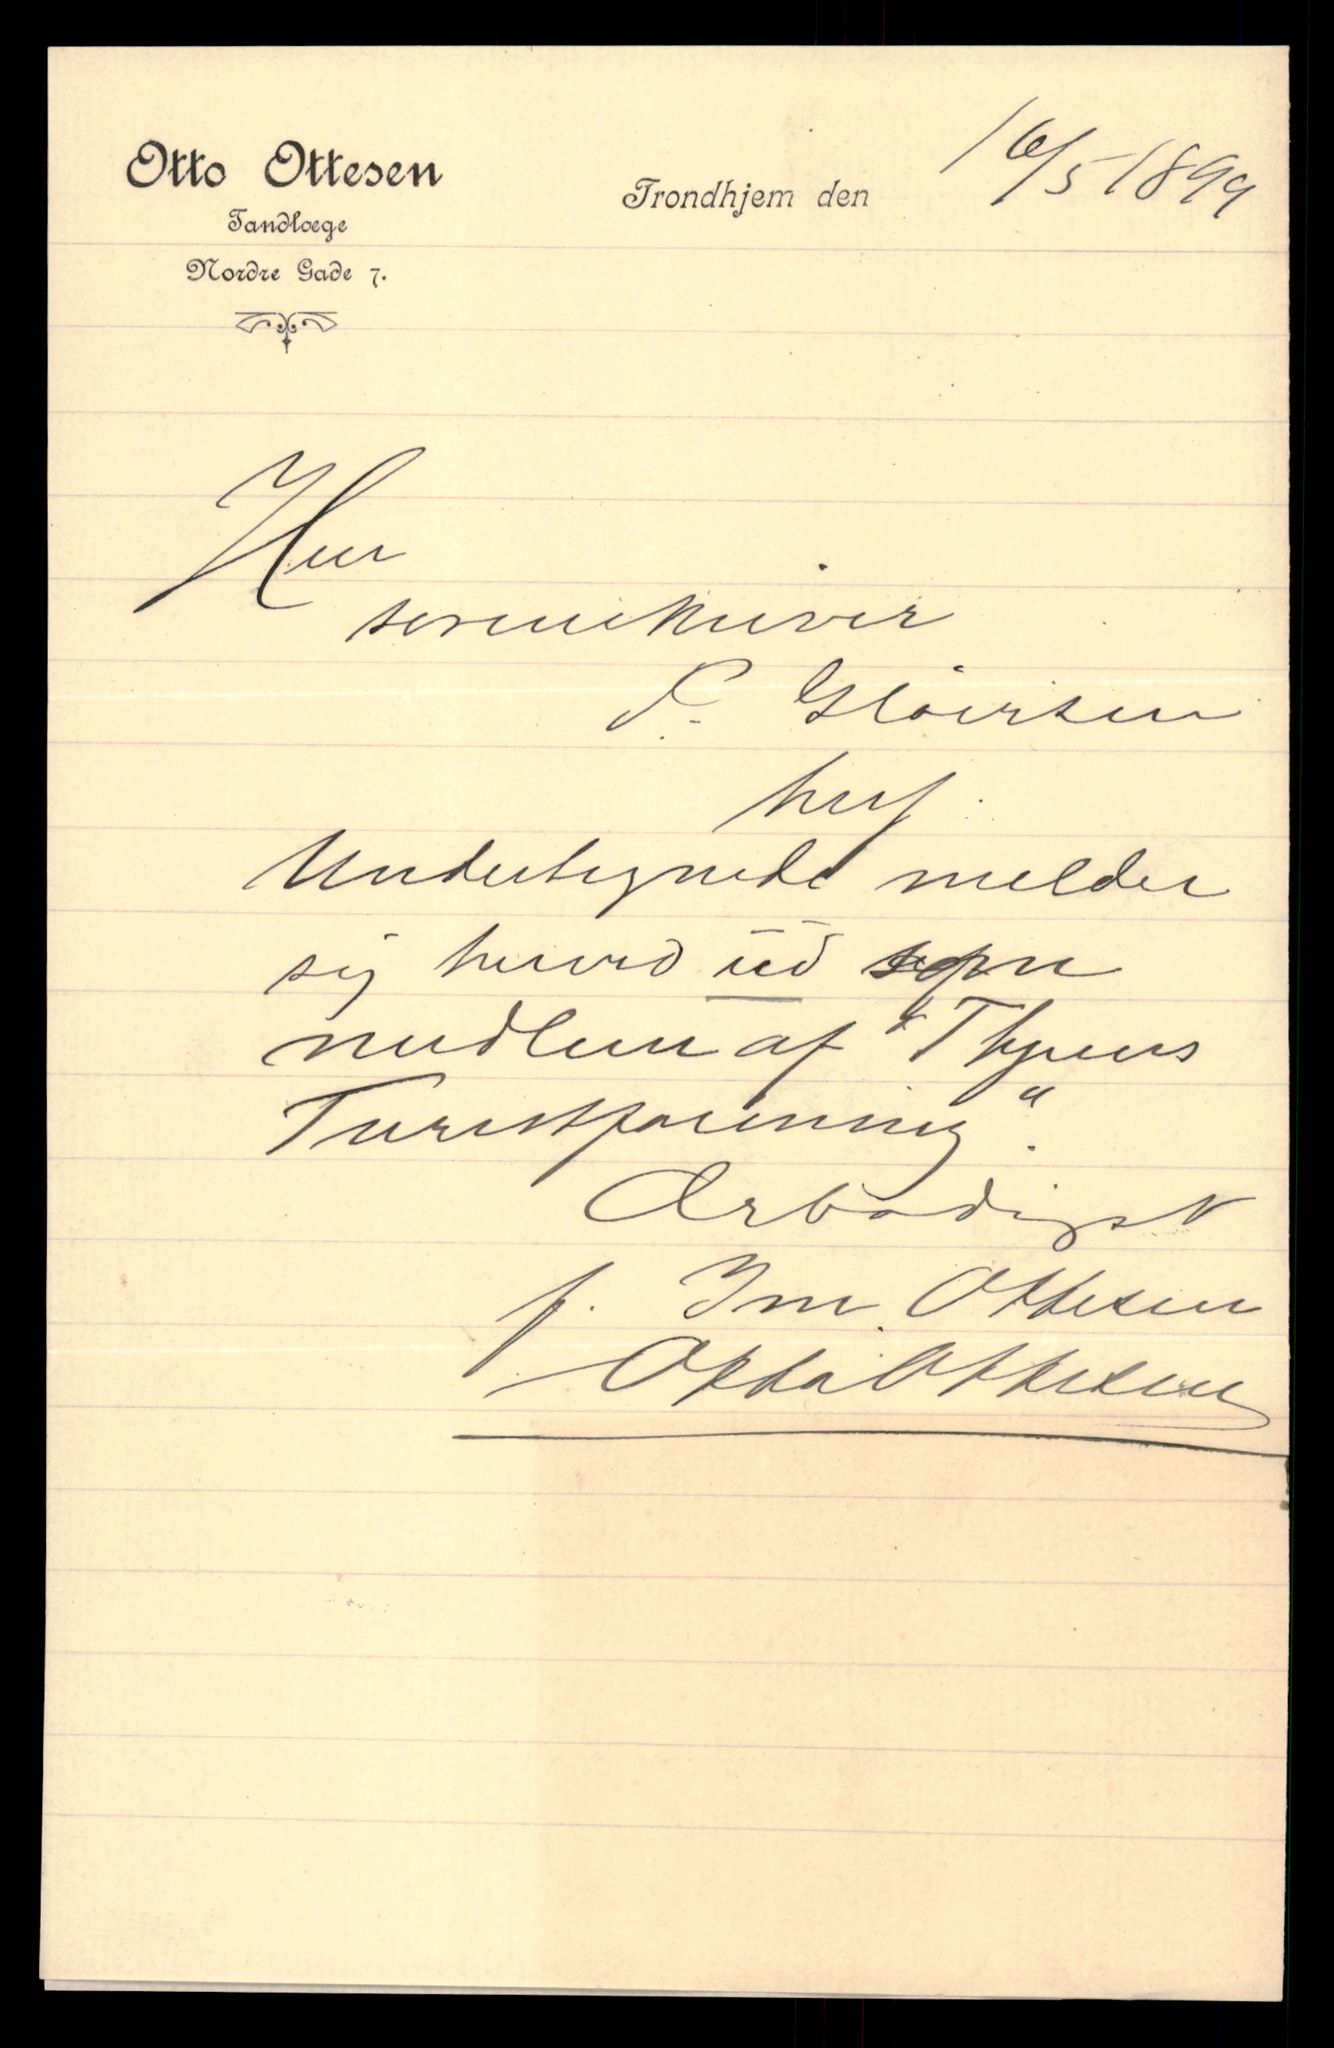 Otto Ottesen
Tandlæge
Nordre Gade 7.
Trondhjem den 16/5 1899
Herr
Gløersen
her.
Undertegnede melder
sig herved ud som
medlem af "Thjems
Turistforening".
Ærbødigst
p. Im. Ottesen
Ottesen